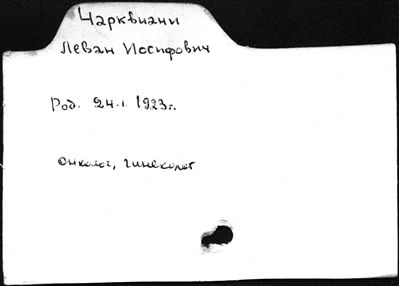 Чарквиани
Леван Иосифович
Род. 24.I. 1923г.
онколог, гинеколог